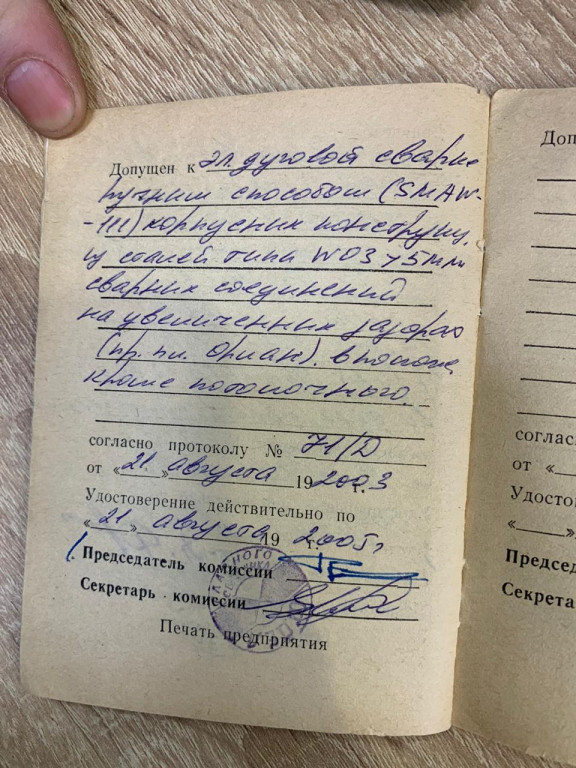 Допущен к эл. дуговой сварке
ручным способом (SMAW-
-111) корпусных конструкц.
из сталей типа W03 >5мм
сварных соединений
на увеличенных зазорах
(пр. пл. Ориан). в полож,
кроме потолочного.
согласно протоколу № 71/D
от «21» августа 192003
Удостоверение действительно по
«21» августа 19 2005г.
Председатель комиссии
Секретарь комиссии
Печать предприятия
Доп
соглас
от «
Удосто
«
Председ
Секрета